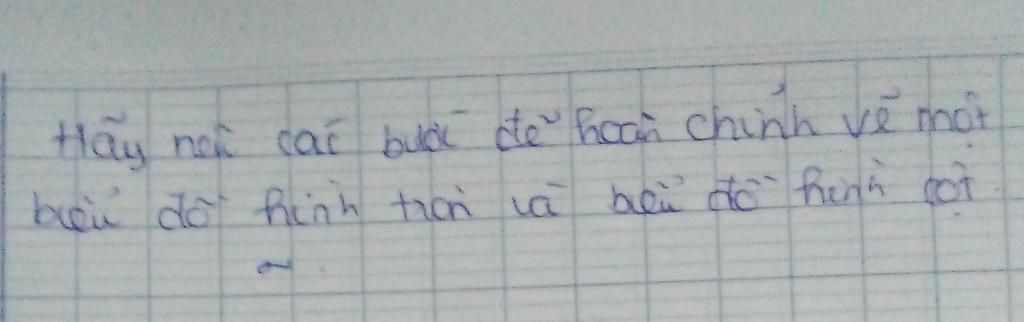 Hãy nói các bước để hoàn chỉnh vẽ một
biểu đồ hình tròn và biểu đồ hình cột